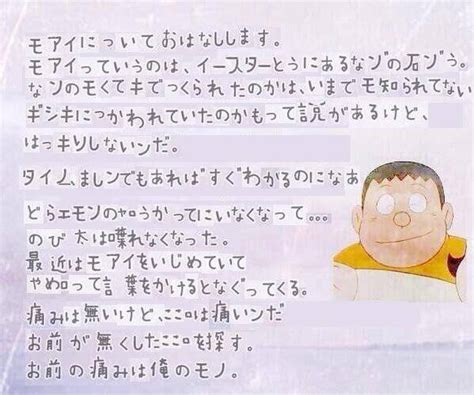 モアイについておはなしします。
モアイっていうのは、イースターとうにあるなゾの石ゾう。
なンのモくてキでつくられたのかは、いまでモ知られてない
ギシキにつかわれていたのかもって説があるけど、
はっキりしないンだ。
タイムましンでもあればすぐわかるのになあ
どらエモンのヤロうかってにいなくなって...
のび太は喋れなくなった。
最近はモアイをいじめていて
やめロって言葉をかけるとなぐってくる。
痛みは無いけど、ココロは痛いンだ
お前が無くしたココロを探す。
お前の痛みは俺のモノ。